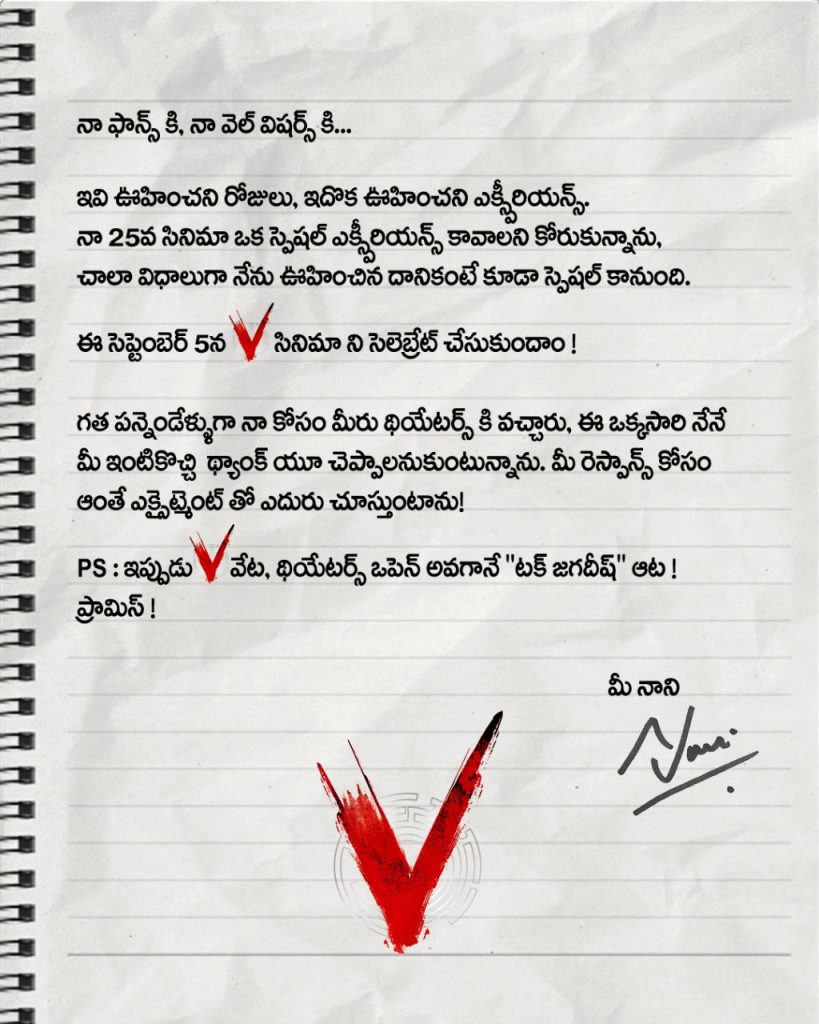 నా ఫాన్స్ కి, నా వెల్ విషర్స్ కి...
ఇవి ఊహించని రోజులు, ఇదొక ఊహించని ఎక్స్పీరియన్స్.
నా 25వ సినిమా ఒక స్పెషల్ ఎక్స్పీరియన్స్ కావాలని కోరుకున్నాను,
చాలా విధాలుగా నేను ఊహించిన దానికంటే కూడా స్పెషల్ కానుంది.
ఈ సెప్టెంబెర్ 5న V సినిమా ని సెలెబ్రేట్ చేసుకుందాం !
గత పన్నెండేళ్ళుగా నా కోసం మీరు థియేటర్స్ కి వచ్చారు, ఈ ఒక్కసారి నేనే
మీ ఇంటికొచ్చి థ్యాంక్ యూ చెప్పాలనుకుంటున్నాను. మీ రెస్పాన్స్ కోసం
ఆంతే ఎక్సైట్మెంట్ తో ఎదురు చూస్తుంటాను!
PS : ఇప్పుడు V వేట, థియేటర్స్ ఒపెన్ అవగానే "టక్ జగదీష్" ఆట !
ప్రామిస్ !
మీ నాని
Nani
V